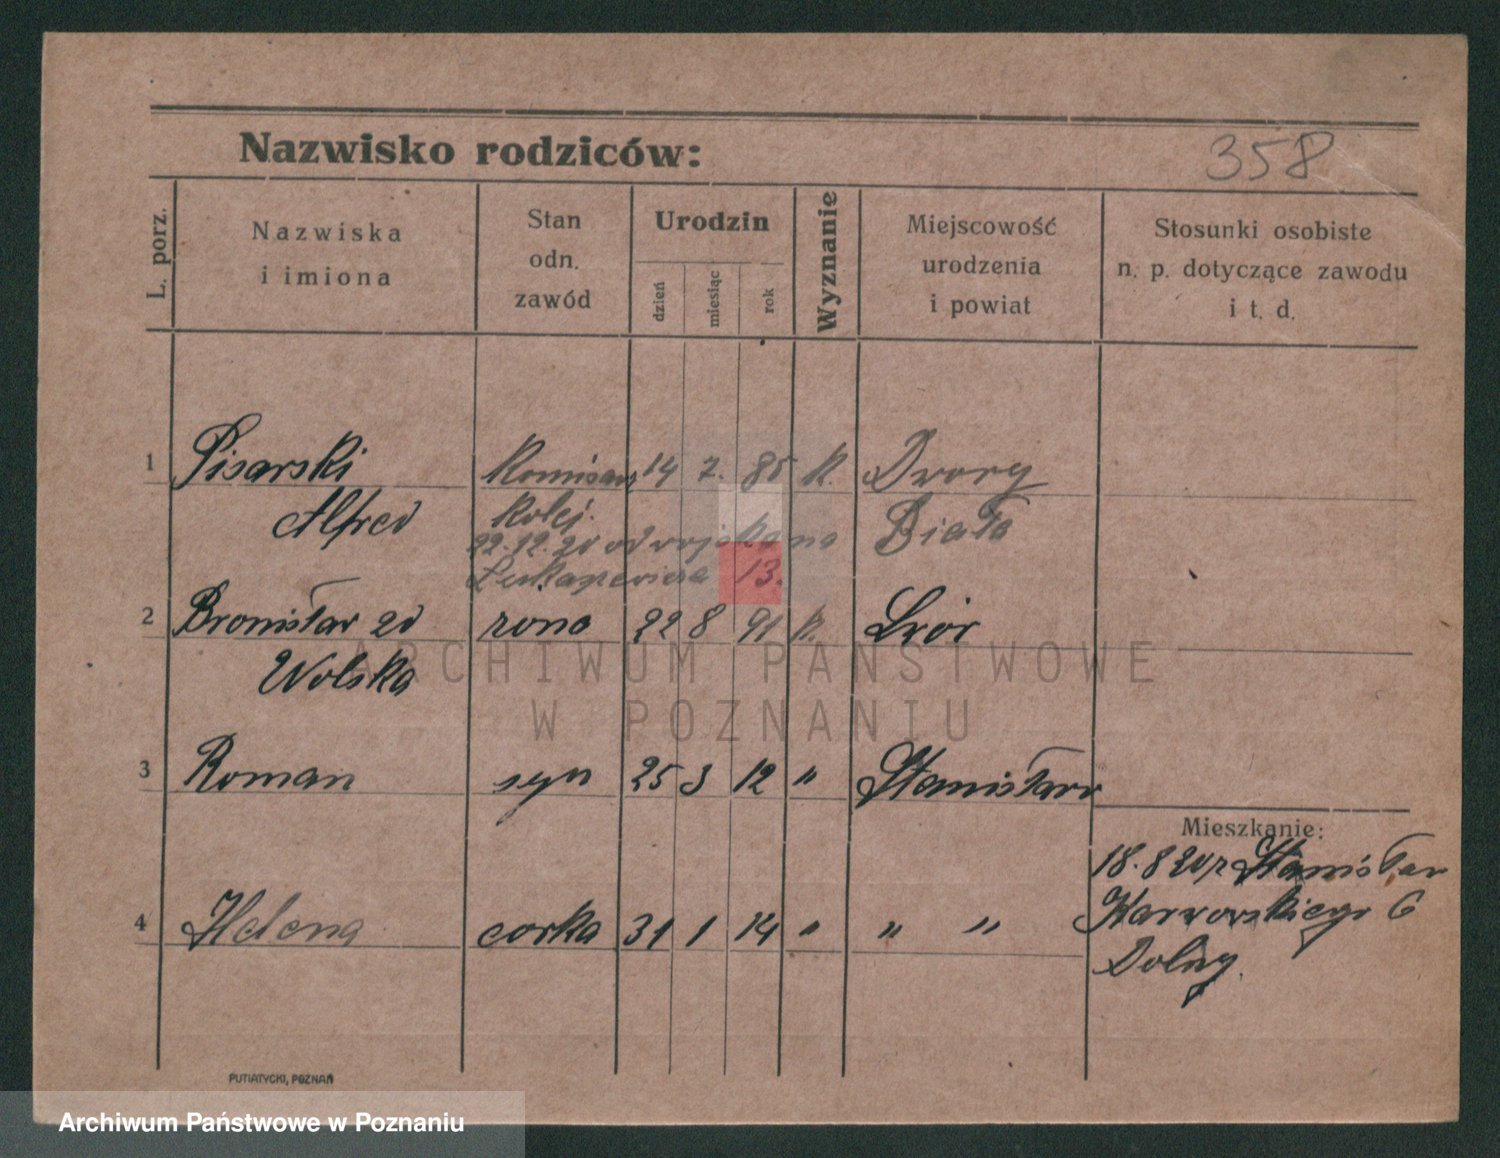 358
Nazwisko rodziców:
L. porz.
Nazwiska
i imiona
Stan
odn.
zawód
Urodzin
dzień
miesiąc
rok
Wyznanie
Miejscowość
urodzenia
i powiat
Stosunki osobiste
n. p. dotyczące zawodu
i t. d.
1 Pisarski Komisarz 14 7. 85 K. Dwory
Alfred Kolej. Biała
22.12.20 od wojska na
13.
2 Bronisław zd żona 22 8 91 K. Lwów
Wolska
3 Roman syn 25 3 12 " Stanisławw
Mieszkanie:
18.8 20 z Stanisław
4 Helena corka 31 1 14 " " "
6
Dolny.
PUTIATYCKI, POZNAŃ
ARCHIWUM PAŃSTWOWE
W POZNANIU
Archiwum Państwowe w Poznaniu